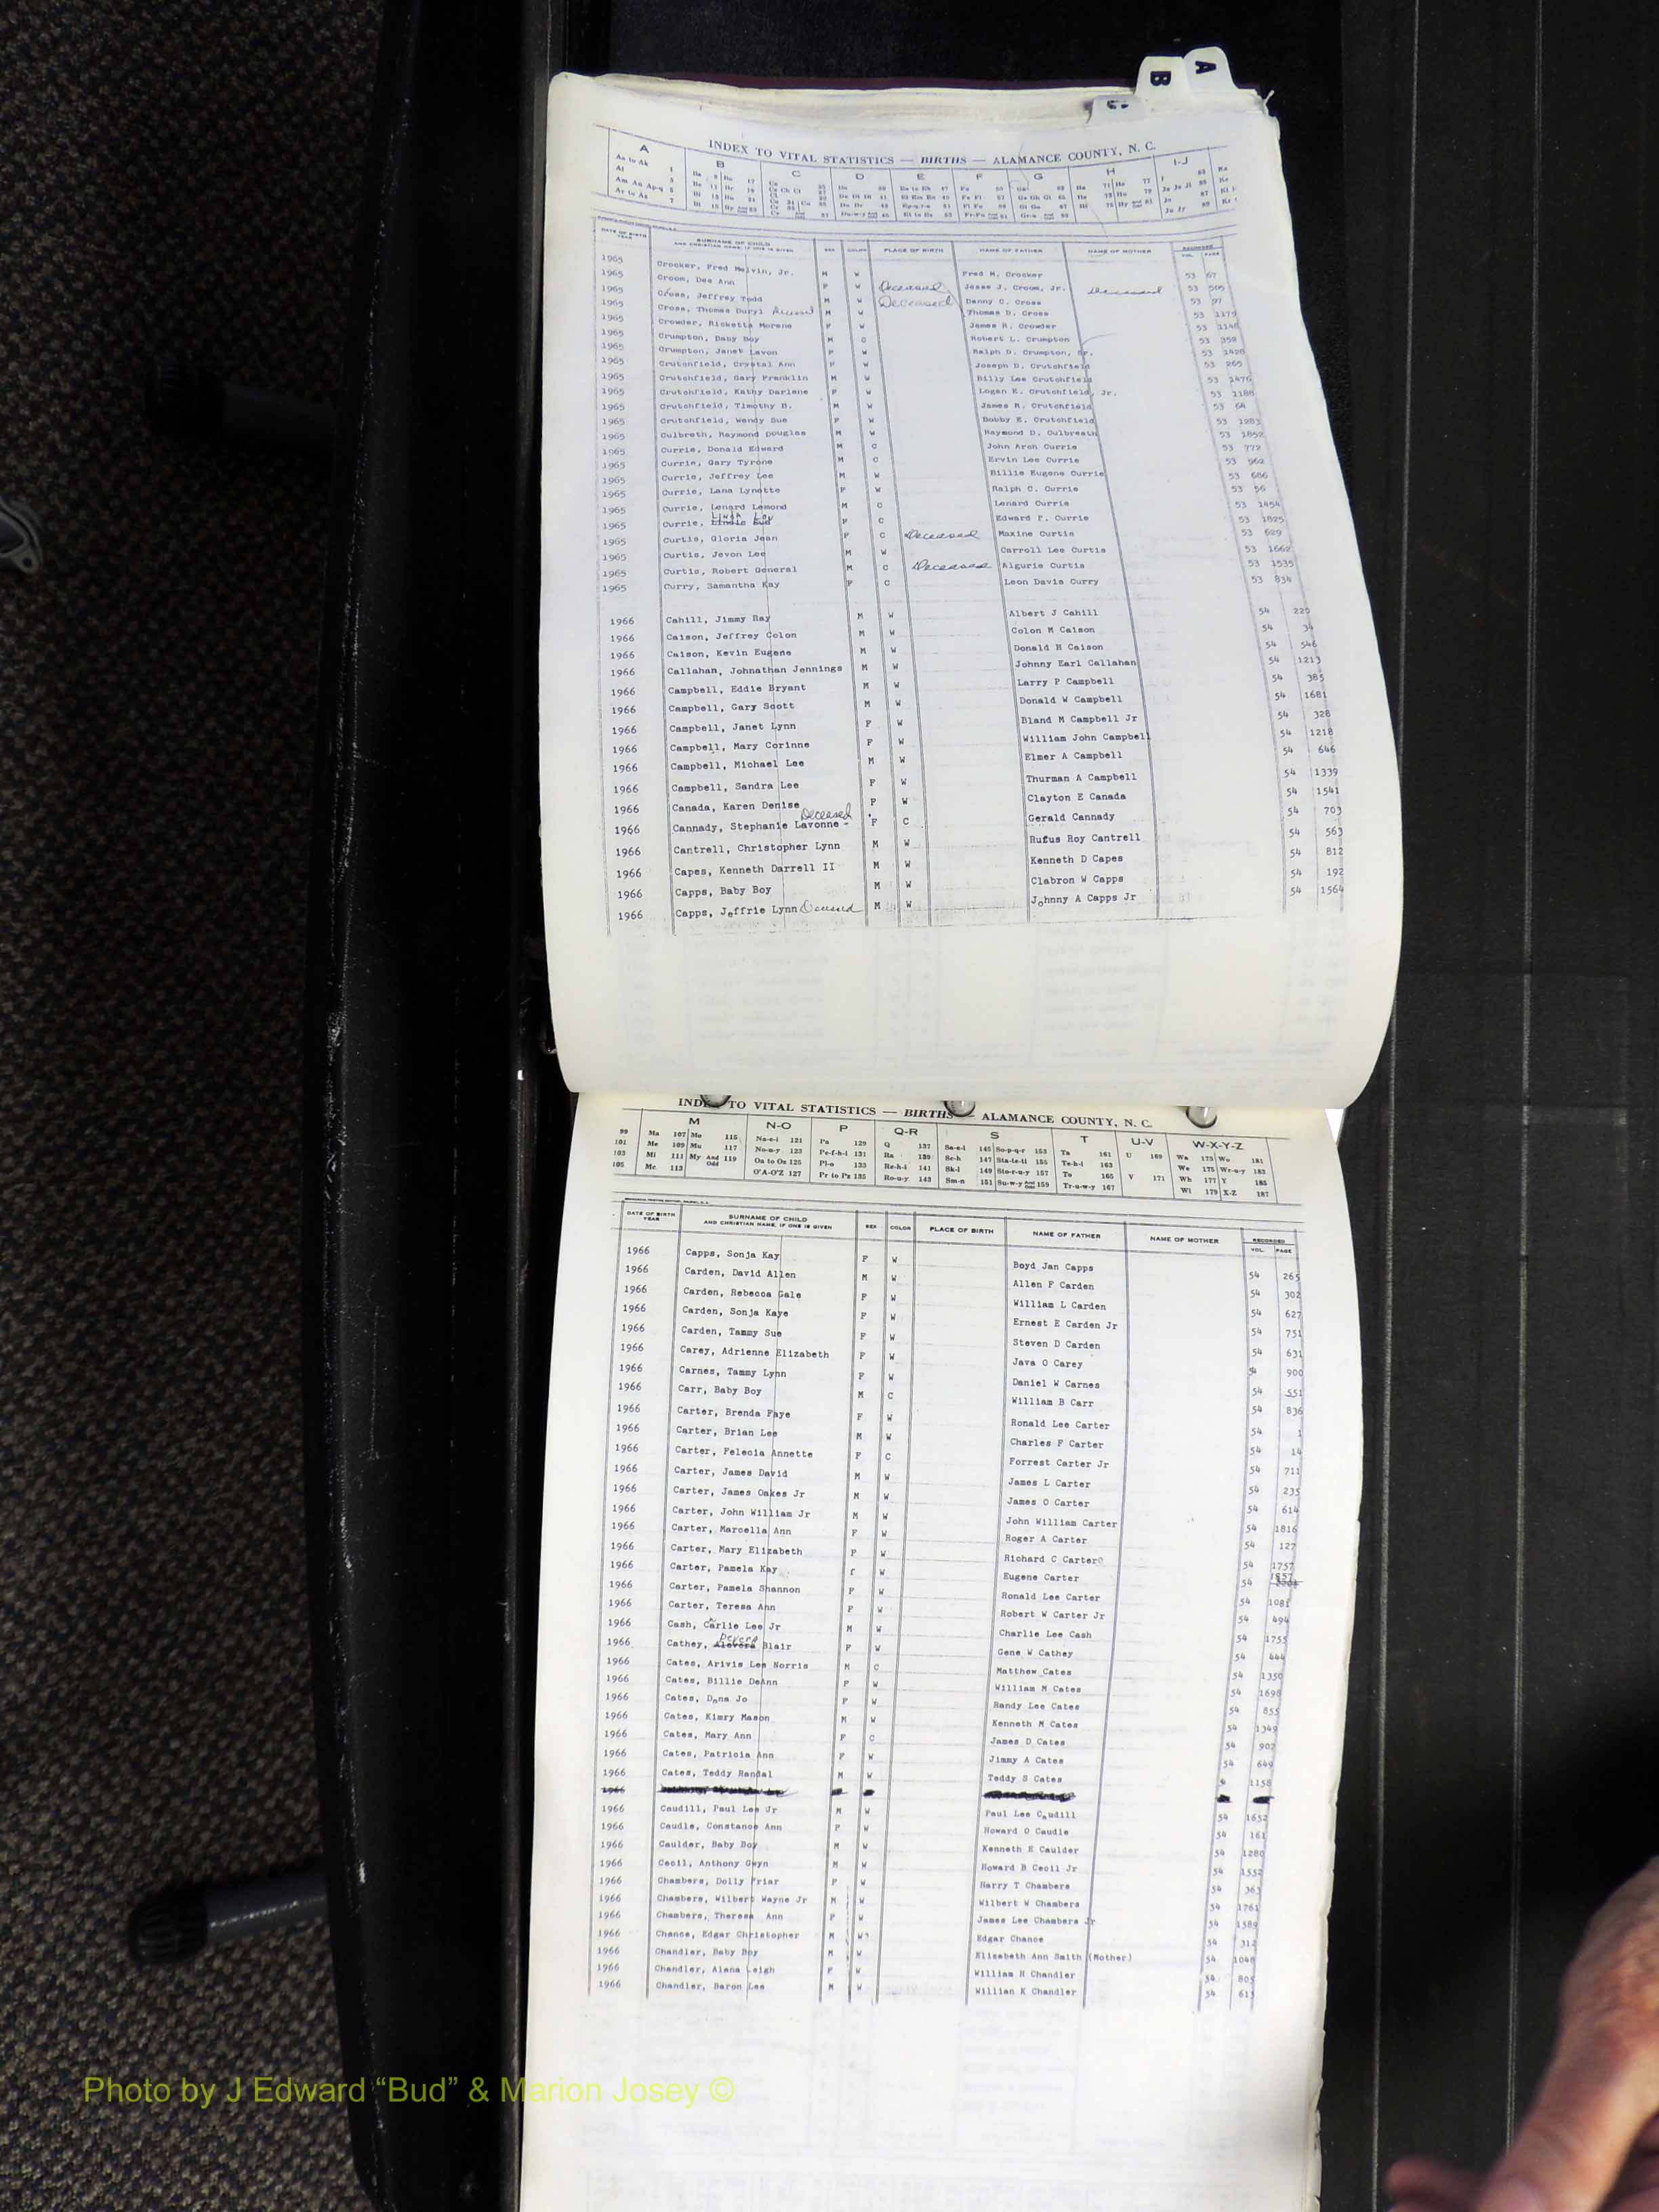 A
B
C
INDEX TO VITAL STATISTICS — BIRTHS — ALAMANCE COUNTY, N. C.
A B C D E F G H I-J
DATE OF BIRTH YEAR SURNAME OF CHILD AND CHRISTIAN NAME, IF ONE IS GIVEN SEX COLOR PLACE OF BIRTH NAME OF FATHER NAME OF MOTHER RECORDED VOL. PAGE
1965 Crocker, Fred Melvin, Jr. M W Fred M. Crocker 53 67
1965 Croom, Dee Ann F W Deceased Jesse J. Croom, Jr. Deceased 53 505
1965 Cross, Jeffrey Todd M W Deceased Danny C. Cross 53 97
1965 Cross, Thomas Duryl Deceased M W Thomas D. Cross 53 1179
1965 Crowder, Ricketta Morene F W James R. Crowder 53 1148
1965 Crumpton, Baby Boy M C Robert L. Crumpton 53 352
1965 Crumpton, Janet Lavon F W Ralph D. Crumpton, Sr. 53 1428
1965 Crutchfield, Crystal Ann F W Joseph D. Crutchfield 53 265
1965 Crutchfield, Gary Franklin M W Billy Lee Crutchfield 53 1476
1965 Crutchfield, Kathy Darlene F W Logan E. Crutchfield, Jr. 53 1188
1965 Crutchfield, Timothy B. M W James R. Crutchfield 53 64
1965 Crutchfield, Wendy Sue F W Bobby E. Crutchfield 53 1283
1965 Culbreth, Raymond Douglas M W Raymond D. Culbreath 53 1852
1965 Currie, Donald Edward M C John Arch Currie 53 772
1965 Currie, Gary Tyrone M C Ervin Lee Currie 53 962
1965 Currie, Jeffrey Lee M W Billie Eugene Currie 53 686
1965 Currie, Lana Lynette F W Ralph C. Currie 53 56
1965 Currie, Lenard Lemond M C Lenard Currie 53 1454
1965 Currie, F C Edward F. Currie 53 1825
1965 Curtis, Gloria Jean F C Deceased Maxine Curtis 53 629
1965 Curtis, Jevon Lee M W Carroll Lee Curtis 53 1662
1965 Curtis, Robert General M C Deceased Algurie Curtis 53 1535
1965 Curry, Samantha Kay F C Leon Davis Curry 53 834
1966 Cahill, Jimmy Ray M W Albert J Cahill 54 220
1966 Caison, Jeffrey Colon M W Colon M Caison 54 34
1966 Caison, Kevin Eugene M W Donald H Caison 54 546
1966 Callahan, Johnathan Jennings M W Johnny Earl Callahan 54 1213
1966 Campbell, Eddie Bryant M W Larry P Campbell 54 385
1966 Campbell, Gary Scott M W Donald W Campbell 54 1681
1966 Campbell, Janet Lynn F W Bland M Campbell Jr 54 328
1966 Campbell, Mary Corinne F W William John Campbell 54 1218
1966 Campbell, Michael Lee M W Elmer A Campbell 54 646
1966 Campbell, Sandra Lee F W Thurman A Campbell 54 1339
1966 Canada, Karen Denise F W Clayton E Canada 54 1541
1966 Cannady, Stephanie Lavonne - Deceased F C Gerald Cannady 54 703
1966 Cantrell, Christopher Lynn M W Rufus Roy Cantrell 54 563
1966 Capes, Kenneth Darrell II M W Kenneth D Capes 54 812
1966 Capps, Baby Boy M W Clabron W Capps 54 192
1966 Capps, Jeffrie Lynn Deceased M W Johnny A Capps Jr 54 1564
INDEX TO VITAL STATISTICS — BIRTHS — ALAMANCE COUNTY, N. C.
M N-O P Q-R S T U-V W-X-Y-Z
99 Ma 107 Mo 115 Na-e-i 121 Pa 129 Q 137 Sa-e-i 145 So-p-q-r 153 Ta 161 U 169 Wa 173 Wo 181
101 Me 109 Mu 117 No-u-y 123 Pe-f-h-i 131 Ra 139 Sc-h 147 Sta-te-ti 155 Te-h-i 163 We 175 Wr-u-y 183
103 Mi 111 My And Odd 119 Oa to Os 125 Pl-o 133 Re-h-i 141 Sk-l 149 Sto-r-u-y 157 To 165 V 171 Wh 177 Y 185
105 Mc 113 O'A-O'Z 127 Pr to Pz 135 Ro-u-y 143 Sm-n 151 Su-w-y And Odd 159 Tr-u-w-y 167 Wi 179 X-Z 187
DATE OF BIRTH YEAR SURNAME OF CHILD AND CHRISTIAN NAME, IF ONE IS GIVEN SEX COLOR PLACE OF BIRTH NAME OF FATHER NAME OF MOTHER RECORDED VOL. PAGE
1966 Capps, Sonja Kay F W Boyd Jan Capps 54 265
1966 Carden, David Allen M W Allen F Carden 54 302
1966 Carden, Rebecca Gale F W William L Carden 54 627
1966 Carden, Sonja Kaye F W Ernest E Carden Jr 54 751
1966 Carden, Tammy Sue F W Steven D Carden 54 631
1966 Carey, Adrienne Elizabeth F W Java O Carey 54 900
1966 Carnes, Tammy Lynn F W Daniel W Carnes 54 551
1966 Carr, Baby Boy M C William B Carr 54 836
1966 Carter, Brenda Faye F W Ronald Lee Carter 54 1
1966 Carter, Brian Lee M W Charles F Carter 54 14
1966 Carter, Felecia Annette F C Forrest Carter Jr 54 711
1966 Carter, James David M W James L Carter 54 235
1966 Carter, James Oakes Jr M W James O Carter 54 614
1966 Carter, John William Jr M W John William Carter 54 1816
1966 Carter, Marcella Ann F W Roger A Carter 54 127
1966 Carter, Mary Elizabeth F W Richard C Carter 54 1757
1966 Carter, Pamela Kay f W Eugene Carter 54 1857
1966 Carter, Pamela Shannon F W Ronald Lee Carter 54 1081
1966 Carter, Teresa Ann F W Robert W Carter Jr 54 494
1966 Cash, Carlie Lee Jr M W Charlie Lee Cash 54 1755
1966 Cathey, Blair F W Gene W Cathey 54 444
1966 Cates, Arivis Lee Norris M C Matthew Cates 54 1350
1966 Cates, Billie DeAnn F W William M Cates 54 1698
1966 Cates, Dana Jo F W Randy Lee Cates 54 855
1966 Cates, Kimry Mason M W Kenneth M Cates 54 1349
1966 Cates, Mary Ann F C James D Cates 54 902
1966 Cates, Patricia Ann F W Jimmy A Cates 54 649
1966 Cates, Teddy Randal M W Teddy S Cates 54 1158
1966
1966 Caudill, Paul Lee Jr M W Paul Lee Caudill 54 1652
1966 Caudle, Constance Ann F W Howard O Caudle 54 161
1966 Caulder, Baby Boy M W Kenneth E Caulder 54 1280
1966 Cecil, Anthony Gwyn M W Howard B Cecil Jr 54 1552
1966 Chambers, Dolly Friar F W Harry T Chambers 54 363
1966 Chambers, Wilbert Wayne Jr M W Wilbert W Chambers 54 1761
1966 Chambers, Theresa Ann F W James Lee Chambers Jr 54 1589
1966 Chance, Edgar Christopher M W Edgar Chance 54 312
1966 Chandler, Baby Boy M W Elizabeth Ann Smith (Mother) 54 1048
1966 Chandler, Alana Leigh F W William H Chandler 54 805
1966 Chandler, Baron Lee M W William K Chandler 54 613
Photo by J Edward “Bud” & Marion Josey ©